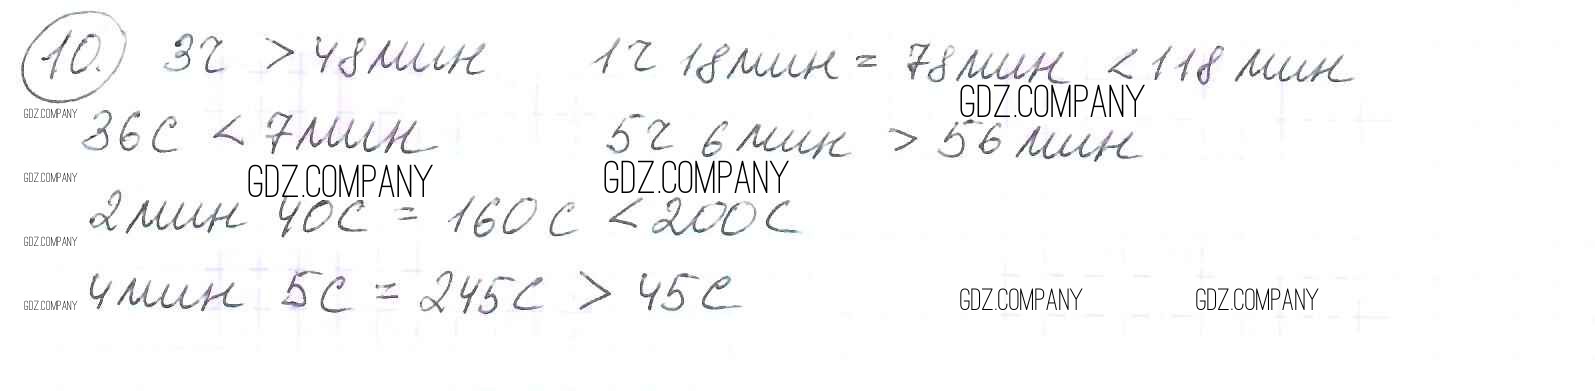 10. 3ч > 48мин 1ч 18мин = 78мин < 118 мин
GDZ.COMPANY
GDZ.COMPANY
36с < 7мин 5ч 6 мин > 56 мин
GDZ.COMPANY GDZ.COMPANY
GDZ.COMPANY
2мин 40с = 160с < 200с
GDZ.COMPANY
4мин 5с = 245с > 45с
GDZ.COMPANY GDZ.COMPANY GDZ.COMPANY